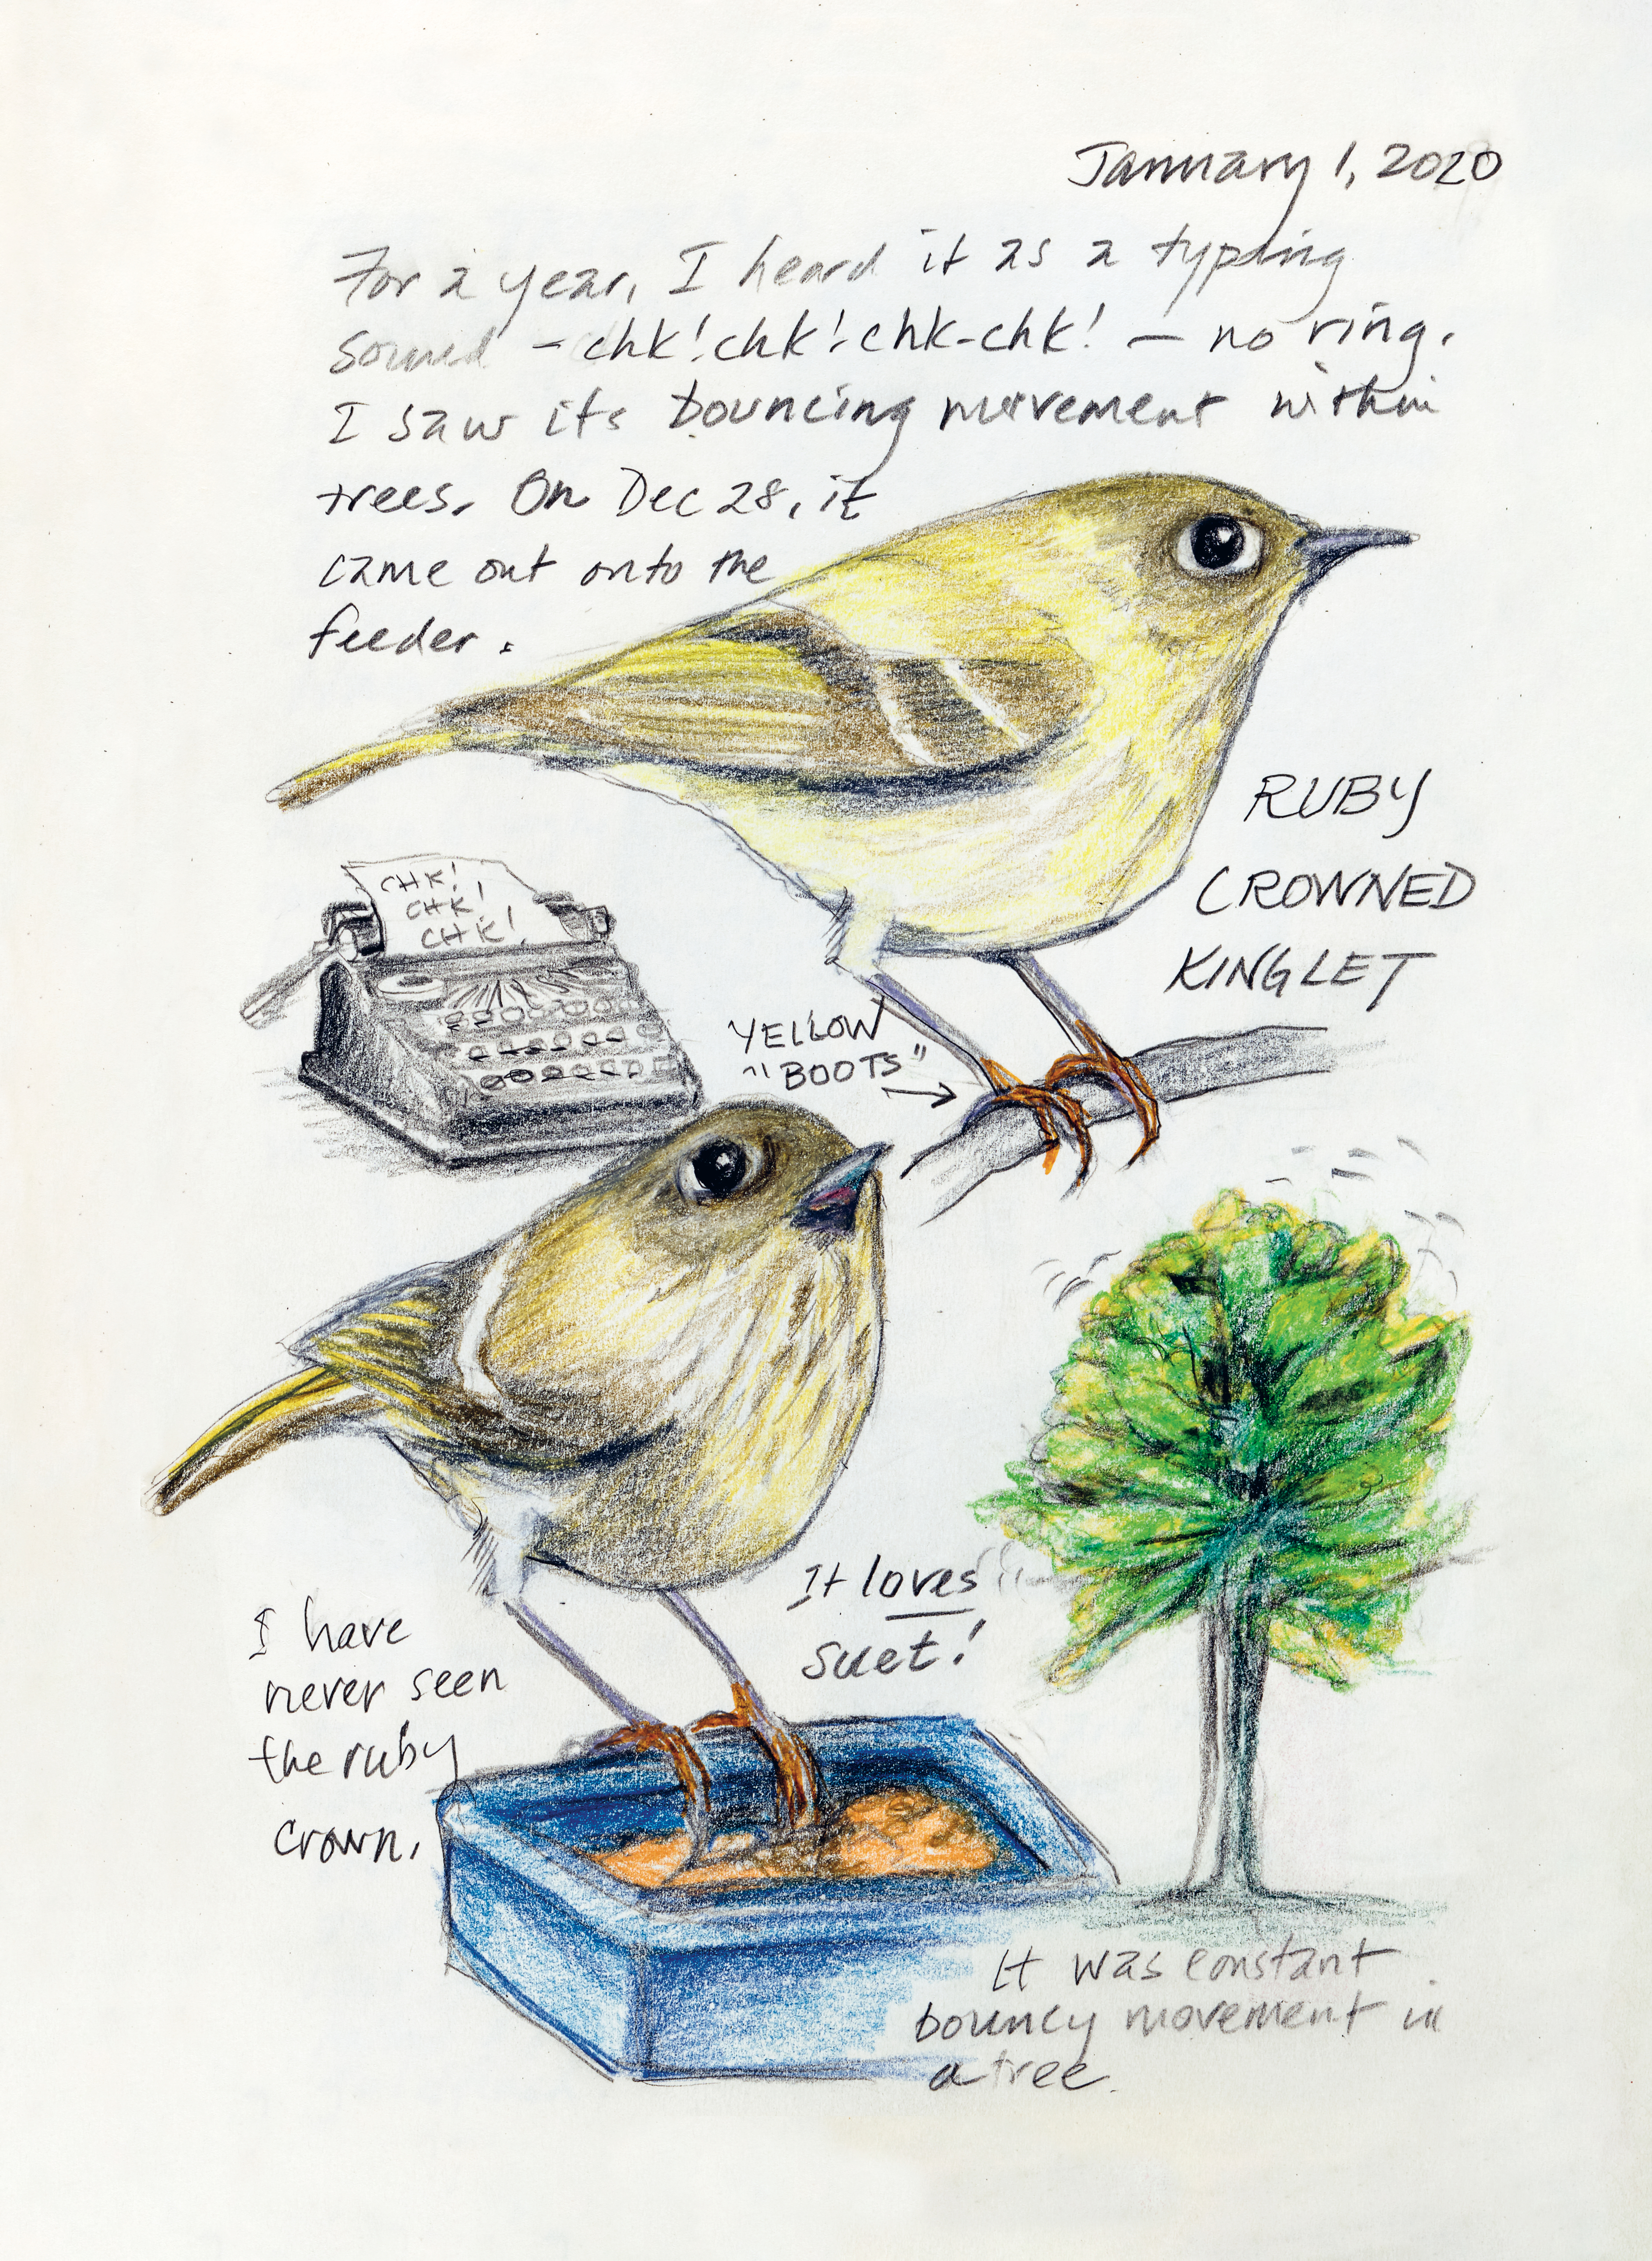 January 1, 2020
For a year, I heard it as a typing
sound - chk! chk! chk-chk! — no ring.
I saw its bouncing movement within
trees. On Dec 28, it
came out onto the
feeder.
RUBY
CROWNED
KINGLET
CHK!
CHK!
CHK!
YELLOW
"BOOTS"
It loves
suet!
I have
never seen
the ruby
crown.
It was constant
bouncy movement in
a tree.